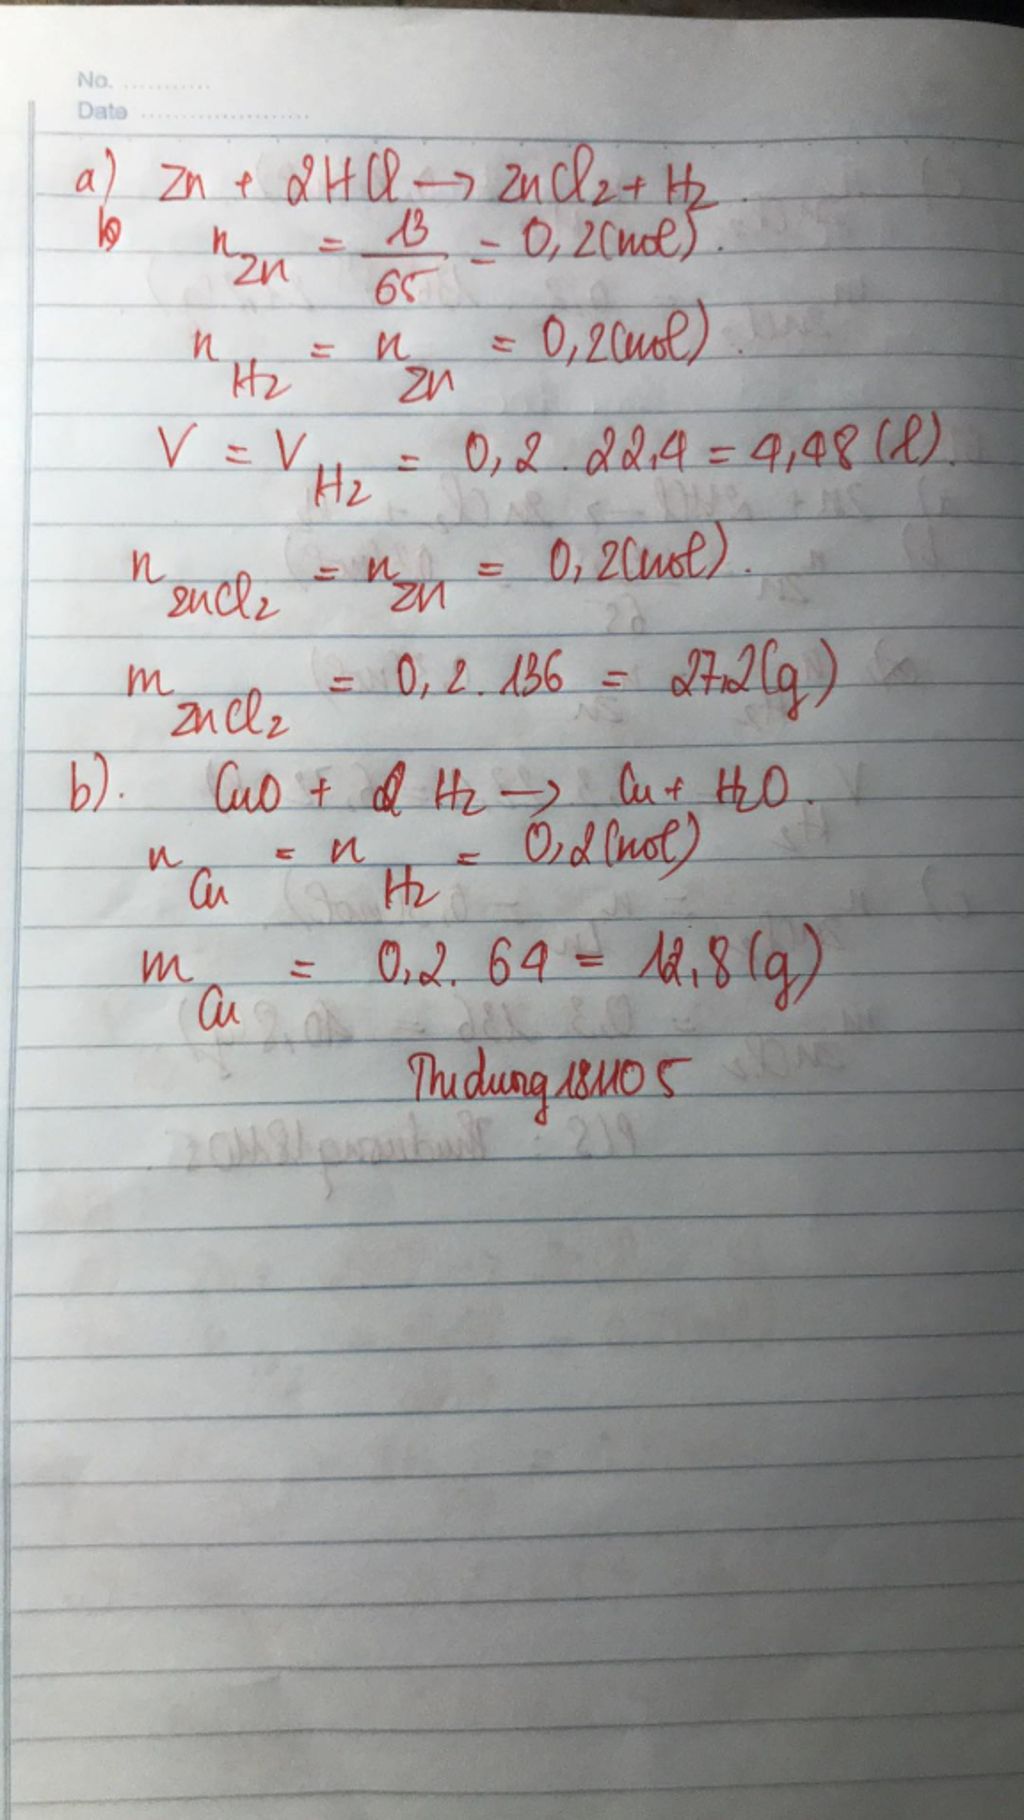 No. ...........
Date ....................
a) Zn + 2HCl → ZnCl2 + H2.
n Zn = 13/65 = 0,2(mol).
n H2 = n Zn = 0,2(mol).
V = V H2 = 0,2 . 22,4 = 4,48 (l).
n ZnCl2 = n Zn = 0,2(mol).
m ZnCl2 = 0,2. 136 = 27,2(g)
b). CuO + H2 → Cu + H2O.
n Cu = n H2 = 0,2(mol)
m Cu = 0,2. 64 = 12,8(g)
Thidung181105